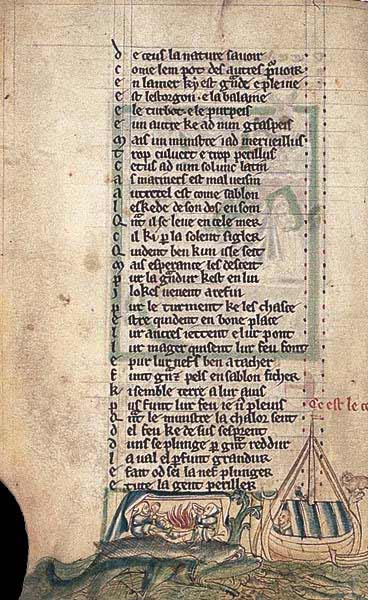 de ceus la nature savoir
come lem pot des autres pvoir
en la mer ky est gnde e pleine
est lestorgon e la balaine
e le turbot e le purpeis
e un autre ke ad nun graspeis
Mais un munstre i ad merveillus
trop culvert e trop perillus
cetus ad nun solunc latin
as mariners est mal veisin
un tretel est come sablon
le skede de son dos en som
Qnt il se leve en cele mer
cil ki p la solent sigler
Quident ben kun isle seit
Mais esperance les deceit
pur la gndur kest en lui
ilokes venent a refui
pur le turment ke les chasce
estre quident en bone place
lur ancres jettent e lur pont
lur manger quisent lur feu font
e pur lur nefs ben atacher
funt gnz pels en sablon ficher
ki semble terre a lur avis
puis funt lur feu
Qnt le munstre la chalor sent
del feu ke de sus
duns se plunge p gnt reddur
aval el pfunt
e fait od sei la nef plunger
e tute la gent periller
Ce est le c